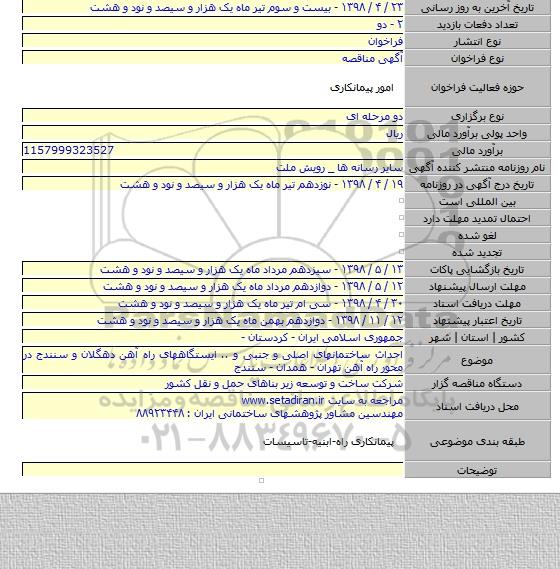 تاریخ آخرین به روز رسانی ۲۳ / ۴ / ۱۳۹۸ - بیست و سوم تیر ماه یک هزار و سیصد و نود و هشت
تعداد دفعات بازدید ۲ - دو
نوع انتشار فراخوان
نوع فراخوان آگهی مناقصه
حوزه فعالیت فراخوان امور پیمانکاری
نوع برگزاری دو مرحله ای
واحد پولی برآورد مالی ریال
برآورد مالی 1157999323527
نام روزنامه منتشر کننده آگهی سایر رسانه ها _ رویش ملت
تاریخ درج آگهی در روزنامه ۱۹ / ۴ / ۱۳۹۸ - نوزدهم تیر ماه یک هزار و سیصد و نود و هشت
بین المللی است
احتمال تمدید مهلت دارد
لغو شده
تجدید شده
تاریخ بازگشایی پاکات ۱۳ / ۵ / ۱۳۹۸ - سیزدهم مرداد ماه یک هزار و سیصد و نود و هشت
مهلت ارسال پیشنهاد ۱۲ / ۵ / ۱۳۹۸ - دوازدهم مرداد ماه یک هزار و سیصد و نود و هشت
مهلت دریافت اسناد ۳۰ / ۴ / ۱۳۹۸ - سی ام تیر ماه یک هزار و سیصد و نود و هشت
تاریخ اعتبار پیشنهاد ۱۲ / ۱۱ / ۱۳۹۸ - دوازدهم بهمن ماه یک هزار و سیصد و نود و هشت
کشور | استان | شهر جمهوری اسلامی ایران - کردستان -
موضوع احداث ساختمانهای اصلی و جنبی و .. ایستگاههای راه آهن دهگلان و سنندج در
محور راه آهن تهران - همدان - سنندج
دستگاه مناقصه گزار شرکت ساخت و توسعه زیر بناهای حمل و نقل کشور
محل دریافت اسناد مراجعه به سایت www.setadiran.ir
مهندسین مشاور پژوهشهای ساختمانی ایران : ۸۸۹۲۳۴۴۸
طبقه بندی موضوعی پیمانکاری راه-ابنیه-تاسیسات
توضیحات
پایگاه اطلاع رسانی مناقصه و مزایده
۰۲۱-۸۸۳۴۹۶۷۰-۵